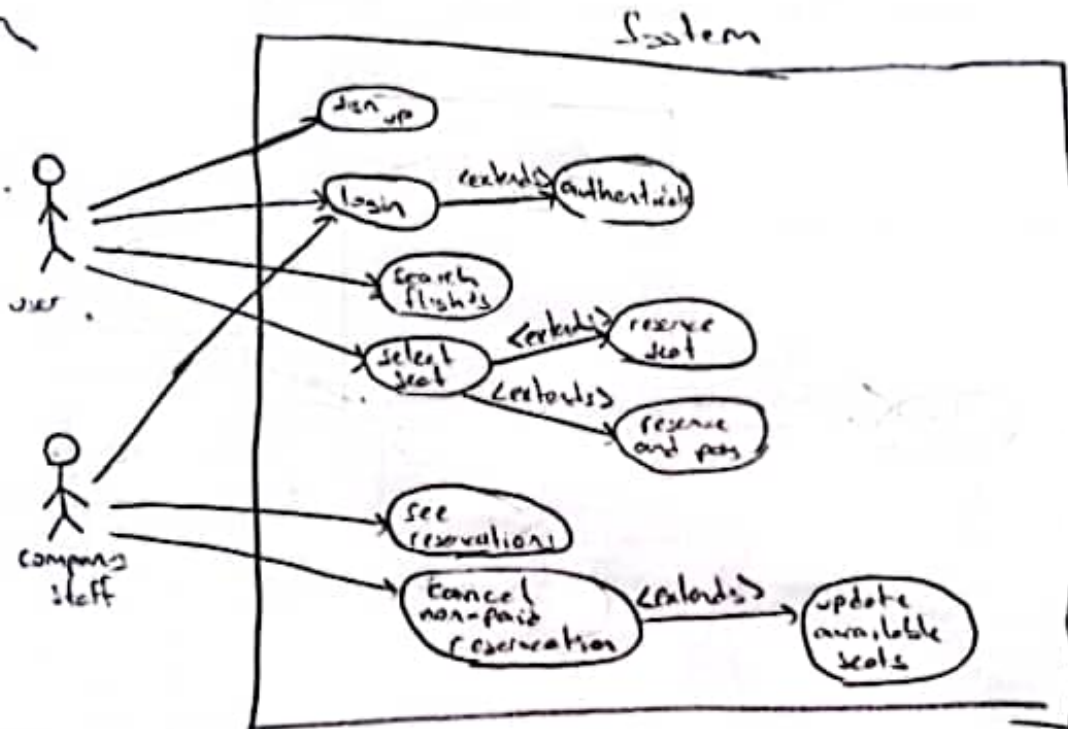 System
sign
up
login
<extends>
authenticate
user
search
flights
select
seat
<extends>
reserve
seat
<extends>
reserve
and pay
company
staff
see
reservations
cancel
non-paid
reservation
<extends>
update
available
seats